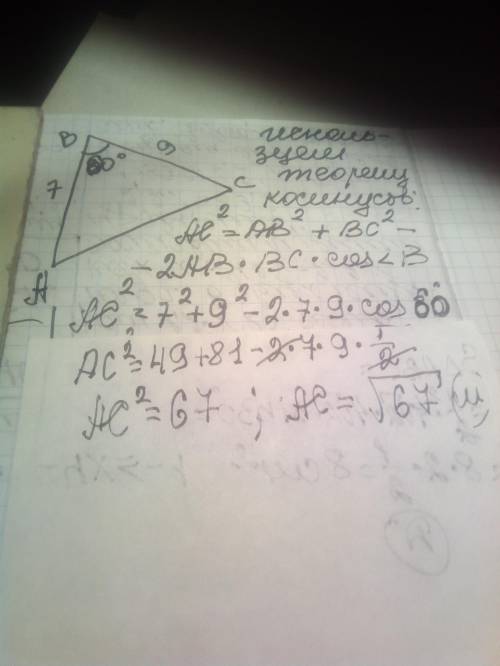 B
60°
9
7
C
A
исполь-
зуем
теорему
косинусов:
AC² = AB² + BC² –
– 2AB · BC · cos∠B
AC² = 7² + 9² – 2 · 7 · 9 · cos 60°
AC² = 49 + 81 – 2 · 7 · 9 · 1/2
AC² = 67 ; AC = √67 (